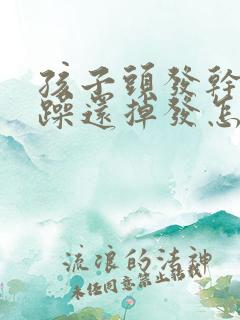 孩子頭發幹
躁還掉發怎
流浪的法神
未任同意禁止轉載